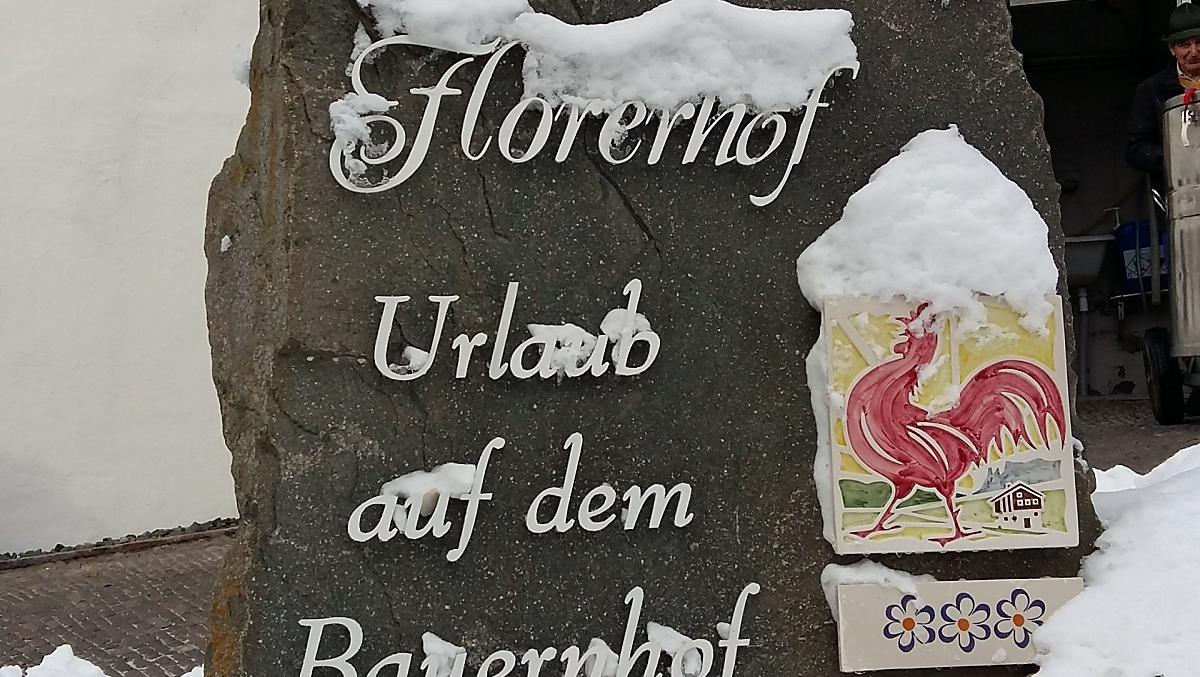 Florerhof
Urlaub
auf dem
Bauernhof